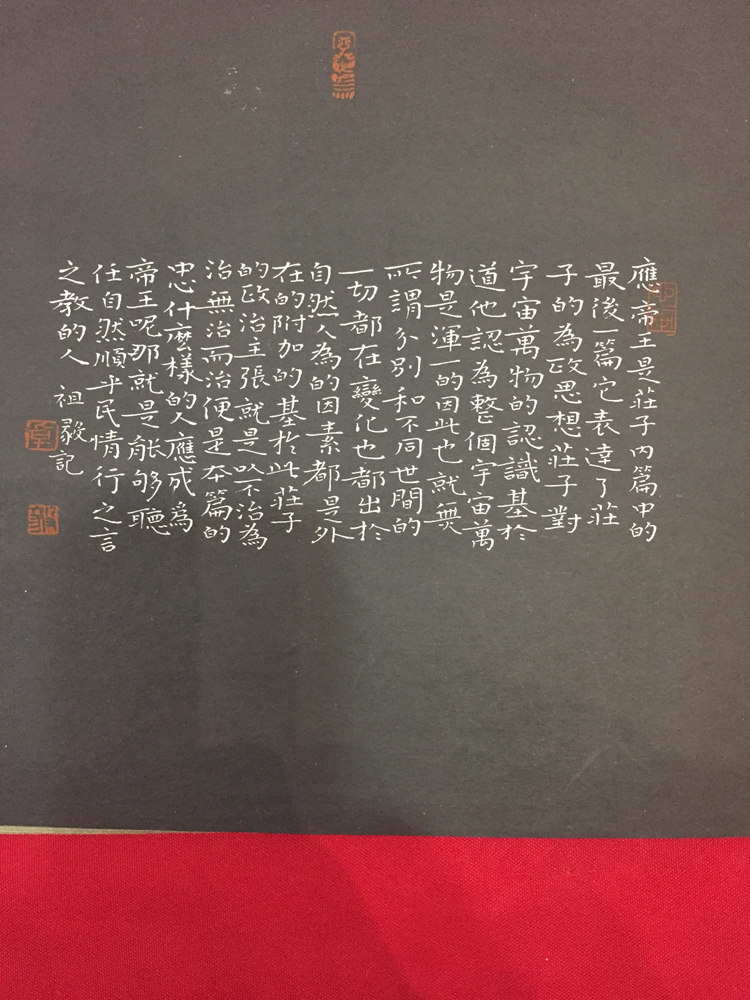 應帝王是莊子内篇中的
最後一篇它表達了莊
子的為政思想莊子對
宇宙萬物的認識基於
道他認為整個宇宙萬
物是渾一的因此也就無
所謂分別和不同世間的
一切都在變化也都出於
自然人為的因素都是外
在的附加的基於此莊子
的政治主張就是以不治為
治無治而治便是本篇的
忠什麼樣的人應成為
帝王呢那就是能够聽
任自然順乎民情行之言
之教的人 祖毅記